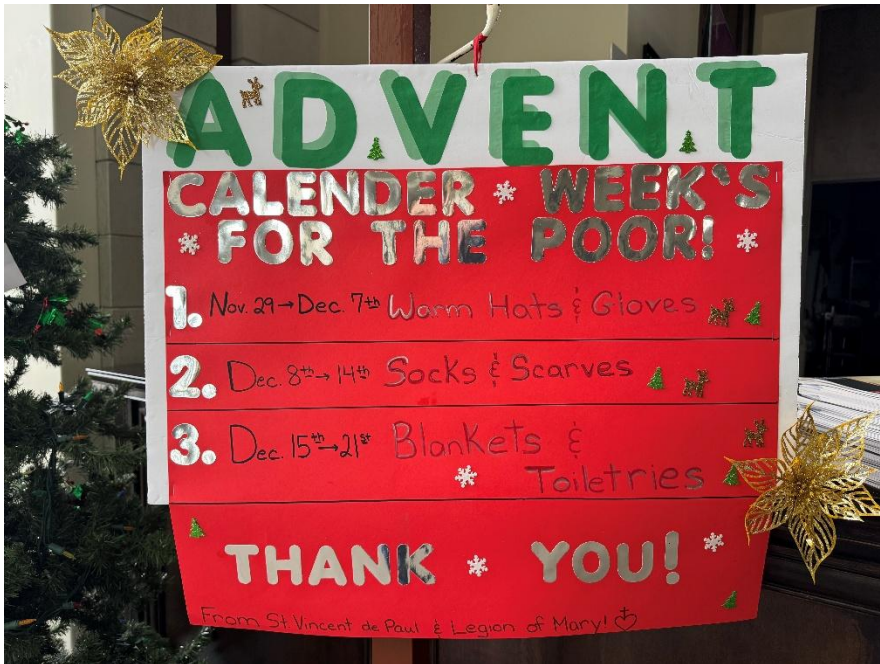 ADVENT
CALENDER WEEK'S
FOR THE POOR!
1. Nov. 29→Dec. 7th Warm Hats & Gloves
2. Dec. 8th→14th Socks & Scarves
3. Dec. 15th→21st Blankets &
Toiletries
THANK YOU!
From St Vincent de Paul & Legion of Mary!